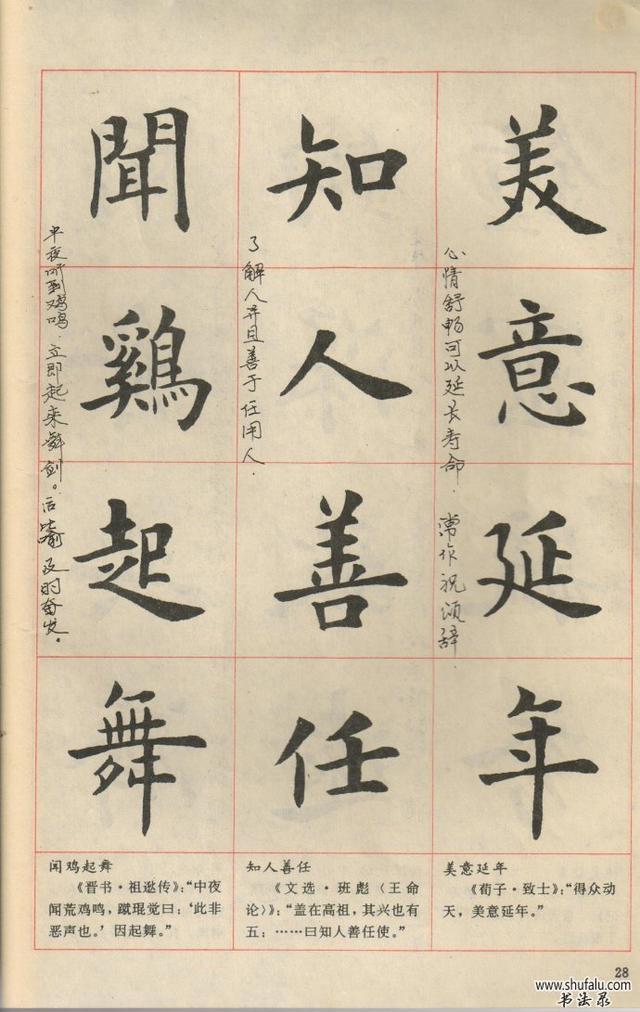 美意延年
心情舒畅可以延长寿命. 常作祝颂辞.
知人善任
了解人并且善于任用人.
聞鷄起舞
半夜听到鸡鸣.立即起来舞剑。后比喻及时奋发。
美意延年
《荀子·致士》:“得众动
天,美意延年。”
知人善任
《文选·班彪(王命
论)》:“盖在高祖,其兴也有
五:……曰知人善任使。”
闻鸡起舞
《晋书·祖逖传》:“中夜
闻荒鸡鸣,蹴琨觉曰:‘此非
恶声也。’因起舞。”
28
www.shufalu.com
书法录